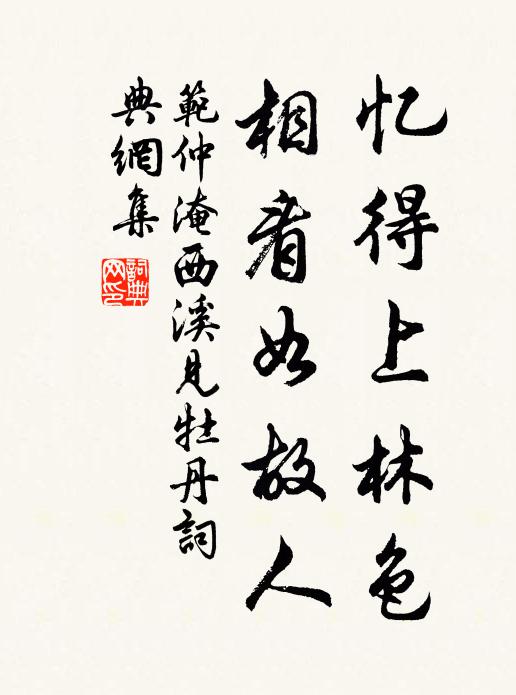 忆得上林色
相看如故人
範仲淹西溪見牡丹詞
典網集
詞典
网印